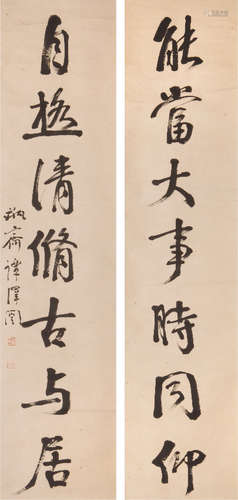 能當大事時同仰
自極清脩古与居
瓶齋譚澤闓